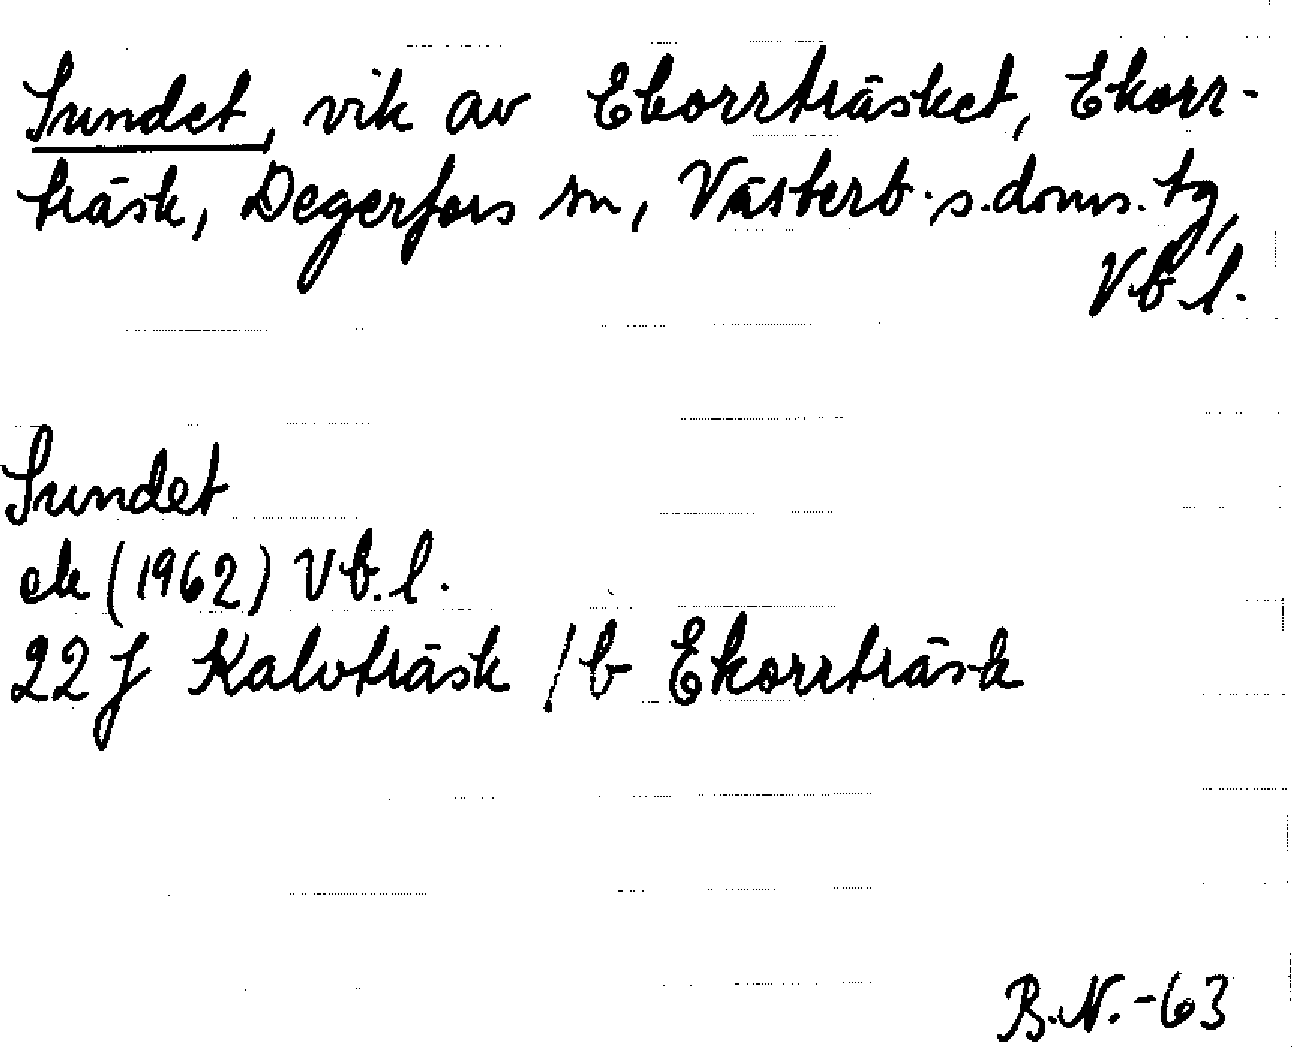 Sundet, vik av Ekorrträsket, Ekorr-
träsk, Degerfors sn, Västerb. s. doms. tg,
Vb l.
Sundet
ek (1962) Vb. l.
22 J Kalvträsk / b Ekorrträsk
B.N. -63